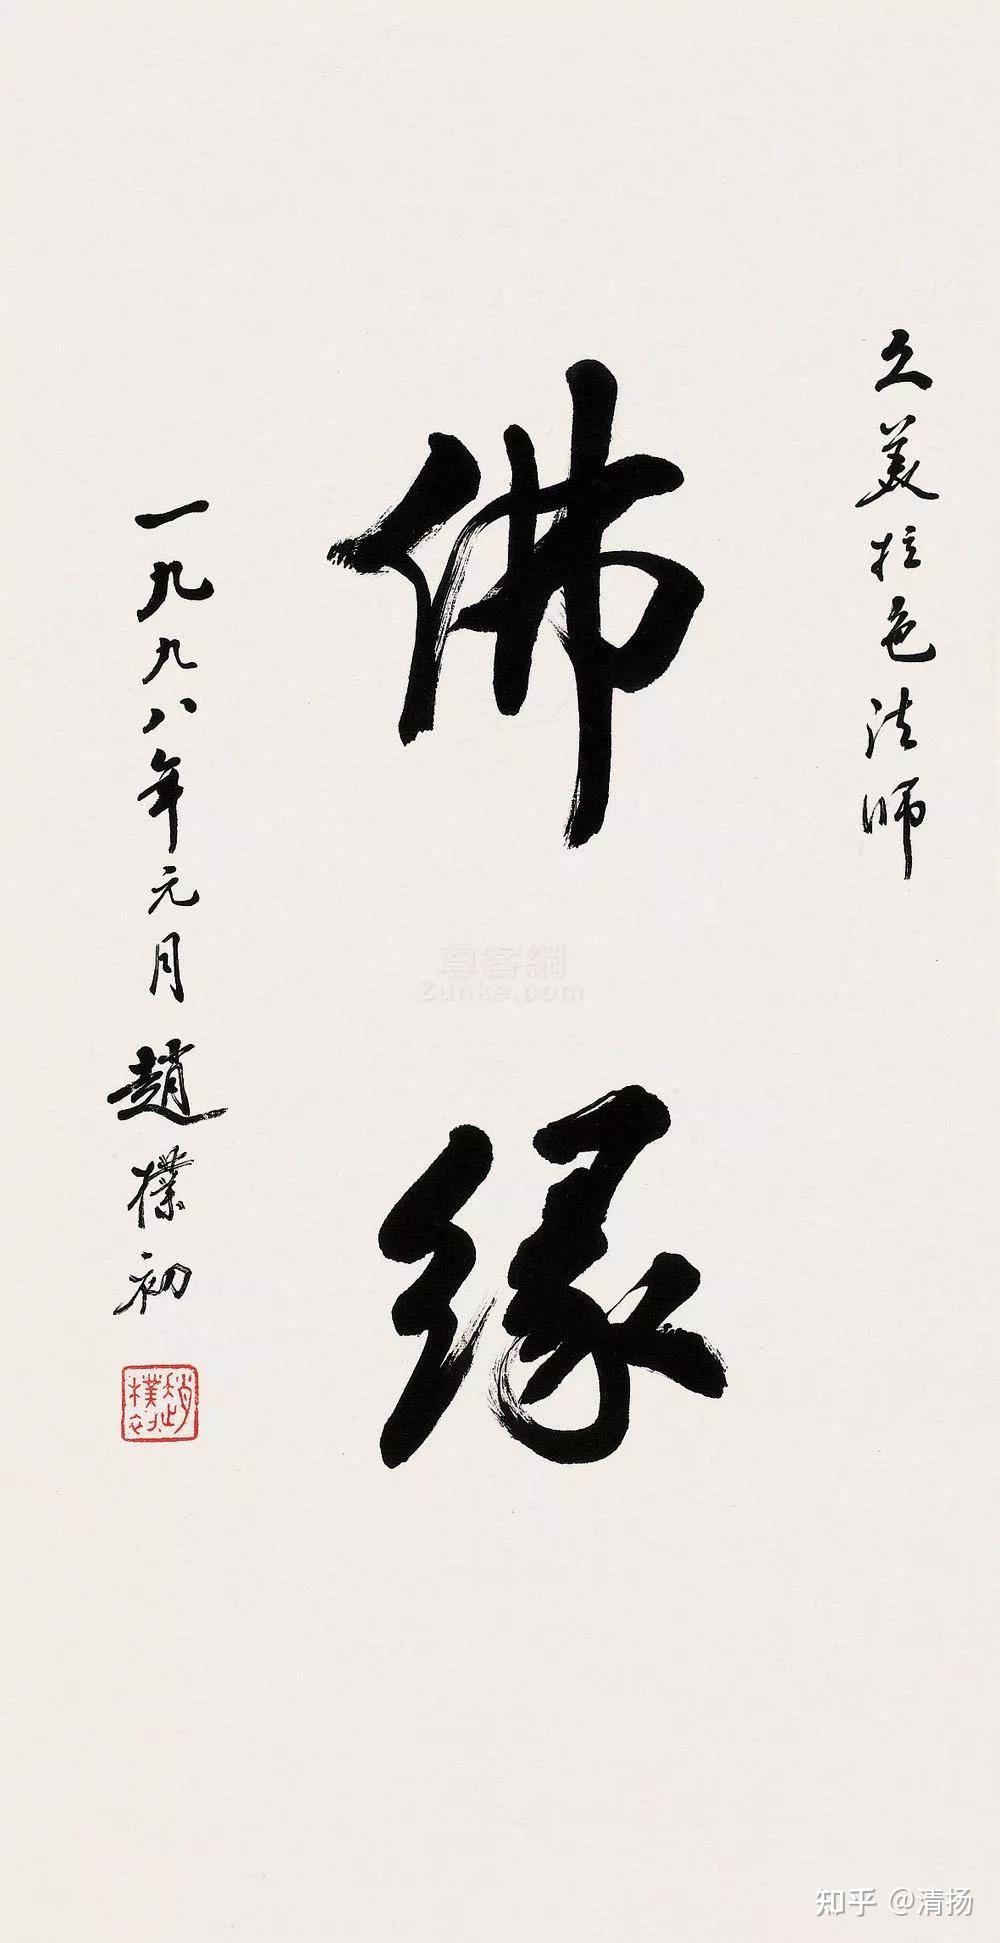 久美拉色法师
佛缘
一九九八年元月趙樸初
趙樸初
尊客網
Zunke.com
知乎 @清扬